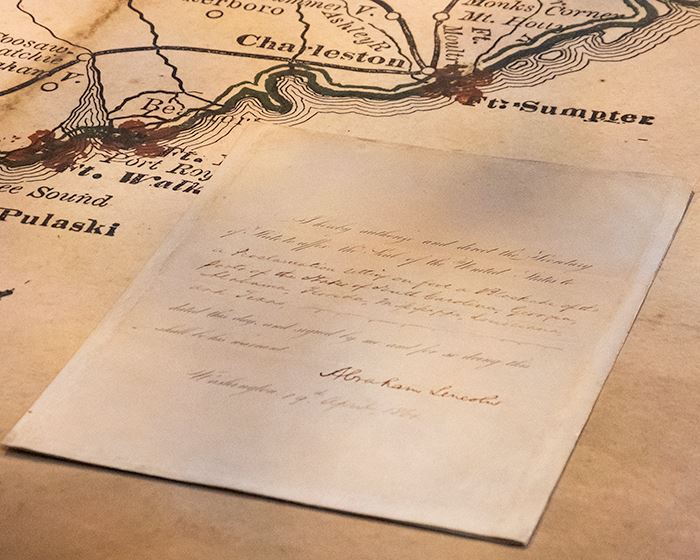 Monks Corner
Mt. Hou
erboro
Ashley R
V.
Moul
Ft.
Charleston
Coosaw
atchie
ham
V.
Bea
Ft. Sumpter
Ft.
Port Roy
Ft. Walk
ee Sound
Pulaski
I hereby authorize and direct the Secretary
of State to affix the Seal of the United States to
a Proclamation setting on foot a Blockade of the
Ports of the States of South Carolina, Georgia,
Alabama, Florida, Mississippi, Louisiana,
and Texas
dated this day, and signed by me and for so doing this
shall be his warrant
Abraham Lincoln
Washington 19th April 1861